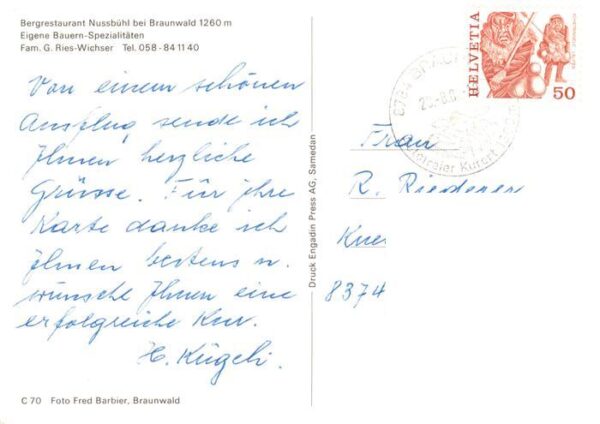 Bergrestaurant Nussbühl bei Braunwald 1260 m
Eigene Bauern-Spezialitäten
Fam. G. Ries-Wichser Tel. 058 - 84 11 40
Von einem schönen
Ausflug sende ich
Ihnen herzliche
Grüsse. Für ihre
Karte danke ich
Ihnen bestens u.
wünsche Ihnen eine
erfolgreiche Kur.
H. Kügeli.
C 70 Foto Fred Barbier, Braunwald
Druck Engadin Press AG, Samedan
HELVETIA
50
8784 BRAUN
Kurort
Frau
R. Riederer
Kur
8374